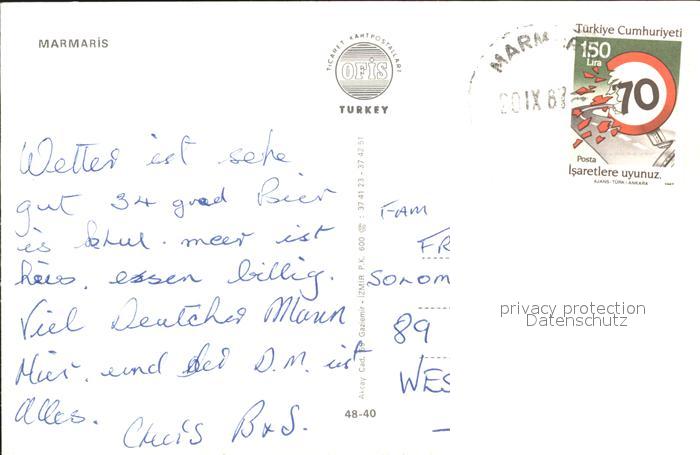 MARMARIS
TICARET KARTPOSTALLARI
OFİS
TURKEY
MARM
20 IX 87
Türkiye Cumhuriyeti
150
Lira
70
Posta
İşaretlere uyunuz.
AJANS-TÜRK / ANKARA 1987
Wetter ist sehe
gut 34 grad Bier
is khul. meer ist
heis. essen billig.
Viel Deutcher Mann
Hier. und der D.M. ist
Alles.
Chris B+S.
Akçay Cad. Gaziemir - İZMİR P.K. 600 ☎ : 37 41 23 - 37 42 51
48-40
FAM
FR
SOLOM
89
WES
privacy protection
Datenschutz